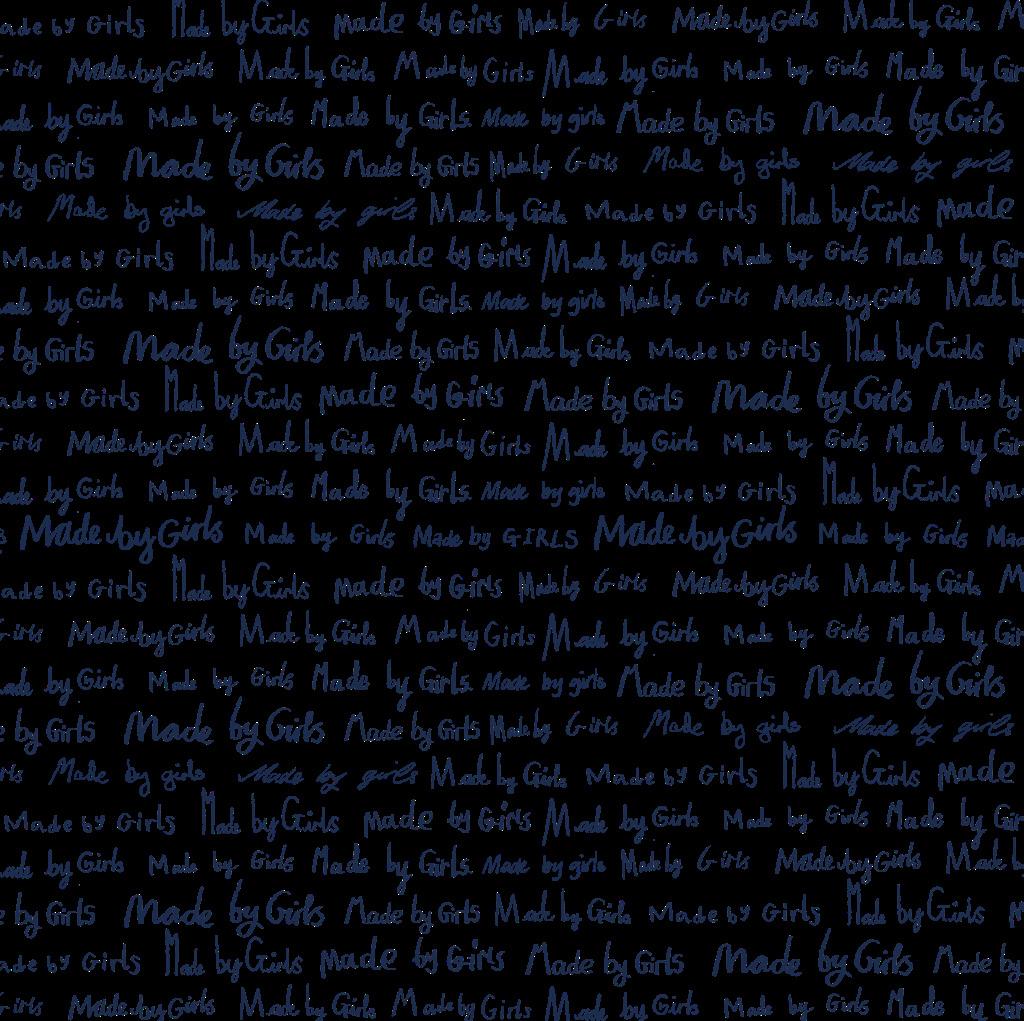 ade by Girls Made by Girls Made by Girls Made by Girls Made by Girls Made by Girls M
irls Made by Girls Made by Girls Made by Girls Made by Girls Made by Girls Made by Gir
ade by Girls Made by Girls Made by Girls Made by girls Made by Girls Made by Girls
e by Girls Made by Girls Made by Girls Made by Girls Made by girls Made by girls
rls Made by girls Made by girls Made by Girls Made by Girls Made by Girls Made
Made by Girls Made by Girls Made by Girls Made by Girls Made by Girls Made by Gir
ade by Girls Made by Girls Made by Girls Made by girls Made by Girls Made by Girls Made b
e by Girls Made by Girls Made by Girls Made by Girls Made by Girls Made by Girls M
ade by Girls Made by Girls Made by Girls Made by Girls Made by Girls Made by
Girls Made by Girls Made by Girls Made by Girls Made by Girls Made by Girls Made by Gir
ade by Girls Made by Girls Made by Girls Made by girls Made by Girls Made by Girls Ma
s Made by Girls Made by Girls Made by GIRLS Made by Girls Made by Girls Ma
ade by Girls Made by Girls Made by Girls Made by Girls Made by Girls Made by Girls M
irls Made by Girls Made by Girls Made by Girls Made by Girls Made by Girls Made by Gir
ade by Girls Made by Girls Made by Girls Made by girls Made by Girls Made by Girls
e by Girls Made by Girls Made by Girls Made by Girls Made by girls Made by girls
rls Made by girls Made by girls Made by Girls Made by Girls Made by Girls Made
Made by Girls Made by Girls Made by Girls Made by Girls Made by Girls Made by Gir
ade by Girls Made by Girls Made by Girls Made by girls Made by Girls Made by Girls Made b
e by Girls Made by Girls Made by Girls Made by Girls Made by Girls Made by Girls M
ade by Girls Made by Girls Made by Girls Made by Girls Made by Girls Made by
Girls Made by Girls Made by Girls Made by Girls Made by Girls Made by Girls Made by Gir